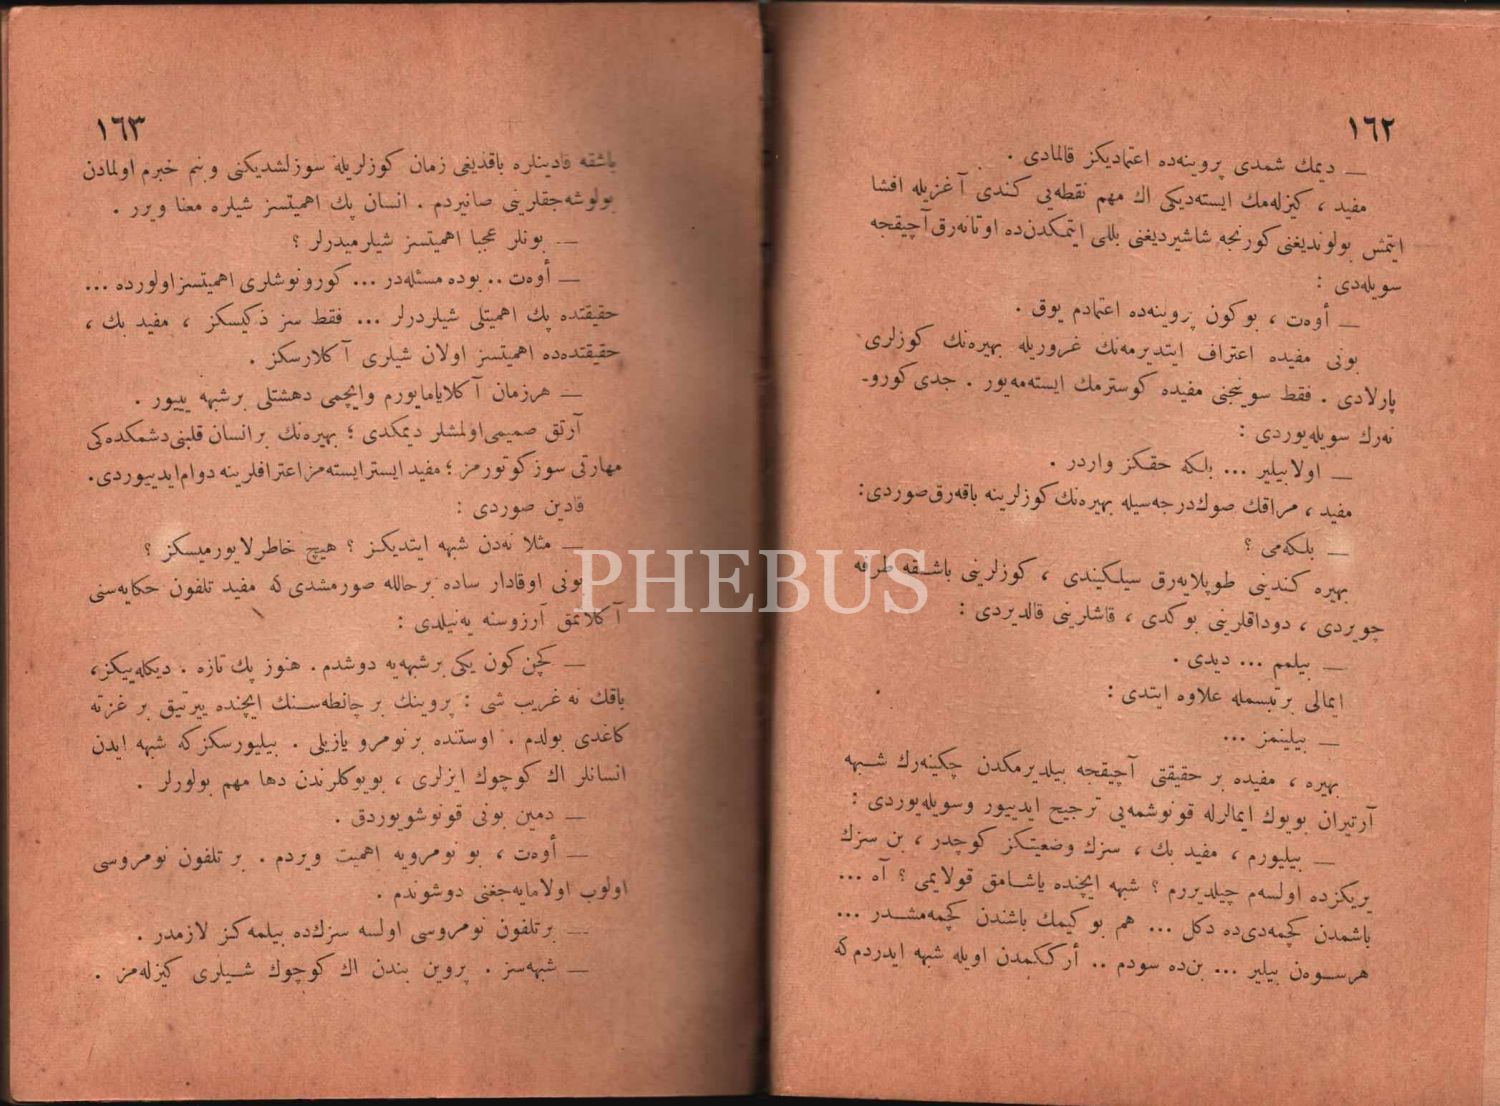 ١٦٢
— ديمك شمدى پروينه‌ده اعتماديكز قالمادى .
مفيد ، كيزله‌مك ايسته‌ديكى اك مهم نقطه‌يى كندى آغزيله افشا
ايتمش بولونديغنى كورنجه شاشيرديغنى بللى ايتمكدن‌ده اوتانه‌رق آچيقجه
سويله‌دى :
— أوه‌ت ، بوكون پروينه‌ده اعتمادم يوق .
بونى مفيده اعتراف ايتديرمه‌نك غروريله بهيره‌نك كوزلرى
پارلادى . فقط سوينجنى مفيده كوسترمك ايسته‌مه‌يور . جدى كورو-
نه‌رك سويله‌يوردى :
— اولابيلير ... بلكه حقكز واردر .
مفيد ، مراقك صوك‌درجه‌سيله بهيره‌نك كوزلرينه باقه‌رق صوردى :
— بلكه‌مى ؟
بهيره كندينى طوپلايه‌رق سيلكيندى ، كوزلرينى باشقه طرفه
چويردى ، دوداقلرينى بوكدى ، قاشلرينى قالديردى :
— بيلمم ... ديدى .
ايمالى برتبسمله علاوه ايتدى :
— بيلينمز ...
بهيره ، مفيده بر حقيقتى آچيقجه بيلديرمكدن چكينه‌رك شبهه
آرتيران بويوك ايمالرله قونوشمه‌يى ترجيح ايدييور وسويله‌يوردى :
— بيليورم ، مفيد بك ، سزك وضعيتكز كوچدر ، بن سزك
يريكزده اولسه‌م چيلديررم ؟ شبهه ايچنده ياشامق قولايمى ؟ آه ...
باشمدن كچمه‌دى‌ده دكل ... هم بو كيمك باشندن كچمه‌مشدر ...
هرسوه‌ن بيلير ... بن‌ده سودم .. أرككمدن اويله شبهه ايدردم‌كه
١٦٣
باشقه قادينلره باقديغى زمان كوزلريله سوزلشديكنى وبنم خبرم اولمادن
بولوشه‌جقلرينى صانيردم . انسان پك اهميتسز شيلره معنا ويرر .
— بونلر عجبا اهميتسز شيلرميدرلر ؟
— أوه‌ت .. بوده مسئله‌در ... كورونوشلرى اهميتسز اولورده ...
حقيقتده پك اهميتلى شيلردرلر ... فقط سز ذكيسكز ، مفيد بك ،
حقيقتده‌ده اهميتسز اولان شيلرى آكلارسكز .
— هرزمان آكلايامايورم وايچمى دهشتلى برشبهه ييیور .
آرتق صميمى اولمشلر ديمكدى ؛ بهيره‌نك برانسان قلبنى دشمكده‌كى
مهارتى سوز كوتورمز ؛ مفيد ايسترايسته‌مز اعترافلرينه دوام ايدييوردى.
قادين صوردى :
— مثلا نه‌دن شبهه ايتديكز ؟ هيچ خاطرلايورميسكز ؟
بونى اوقادار ساده برحالله صورمشدى كه مفيد تلفون حكايه‌سنى
آكلاتمق آرزوسنه يه‌نيلدى :
— كچن كون يكى برشبهه‌يه دوشدم . هنوز پك تازه . ديكله‌ييكز،
باقك نه غريب شى : پروينك بر چانطه‌سنك ايچنده ييرتيق بر غزته
كاغدى بولدم . اوستنده برنومرو يازيلى . بيليورسكزكه شبهه ايدن
انسانلر اك كوچوك ايزلرى ، بويوكلرندن دها مهم بولورلر .
— دمين بونى قونوشويوردق .
— أوه‌ت ، بو نومرويه اهميت ويردم . بر تلفون نومروسى
اولوب اولامايه‌جغنى دوشوندم .
— برتلفون نومروسى اولسه سزك‌ده بيلمه‌كز لازمدر .
— شبهه‌سز . پروين بندن اك كوچوك شيلرى كيزله‌مز .
PHEBUS